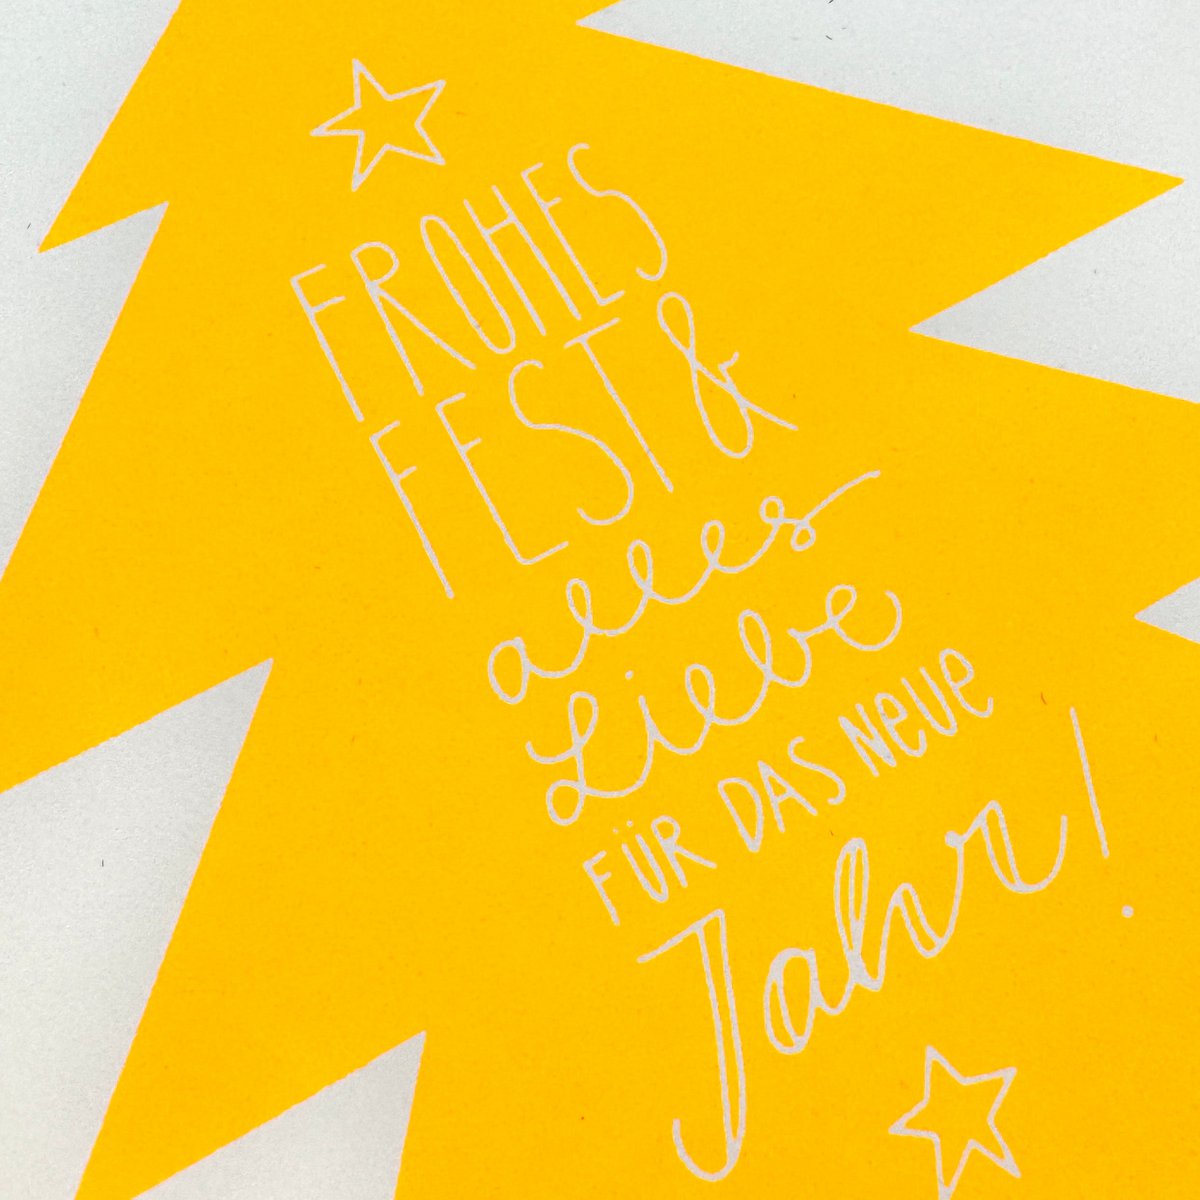 FROHES
FEST &
alles
Liebe
FÜR DAS NEUE
Jahr!